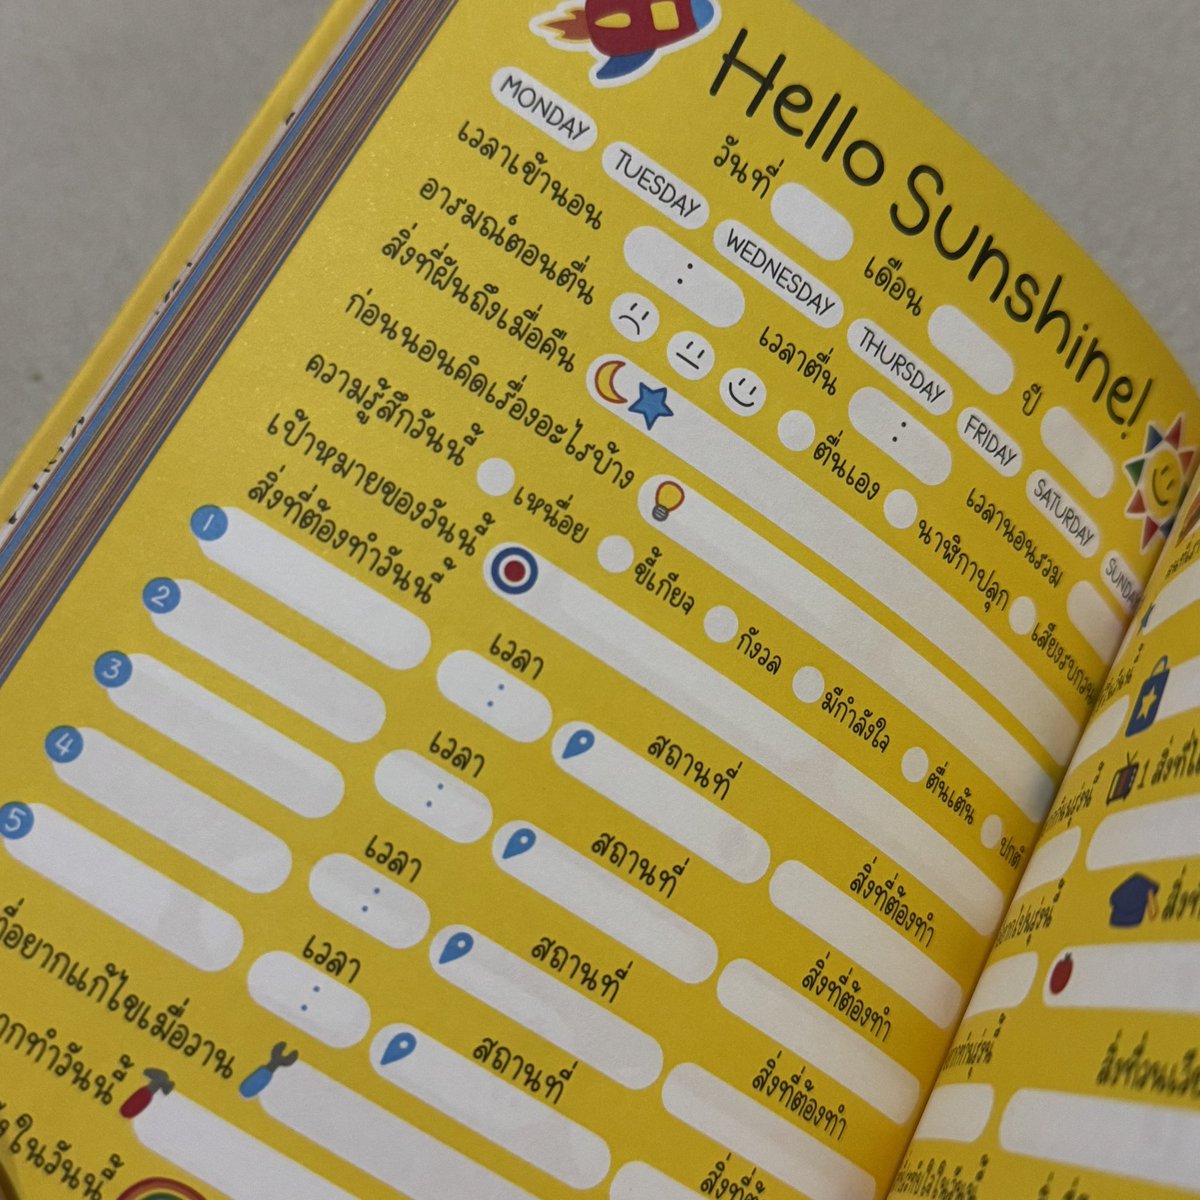 Hello Sunshine!
วันที่ เดือน ปี
MONDAY TUESDAY WEDNESDAY THURSDAY FRIDAY SATURDAY SUNDAY
เวลาเข้านอน : เวลาตื่น : เวลานอนรวม
อารมณ์ตอนตื่น ตื่นเอง นาฬิกาปลุก เสียงรบกวน
สิ่งที่ฝันถึงเมื่อคืน
ก่อนนอนคิดเรื่องอะไรบ้าง
ความรู้สึกวันนี้ เหนื่อย ขี้เกียจ กังวล มีกำลังใจ ตื่นเต้น ปกติ
เป้าหมายของวันนี้
สิ่งที่ต้องทำวันนี้
1 เวลา : สถานที่ สิ่งที่ต้องทำ
2 เวลา : สถานที่ สิ่งที่ต้องทำ
3 เวลา : สถานที่ สิ่งที่ต้องทำ
4 เวลา : สถานที่ สิ่งที่ต้องทำ
5
ที่อยากแก้ไขเมื่อวาน
ากทำวันนี้
ในวันนี้
1 สิ่งที่